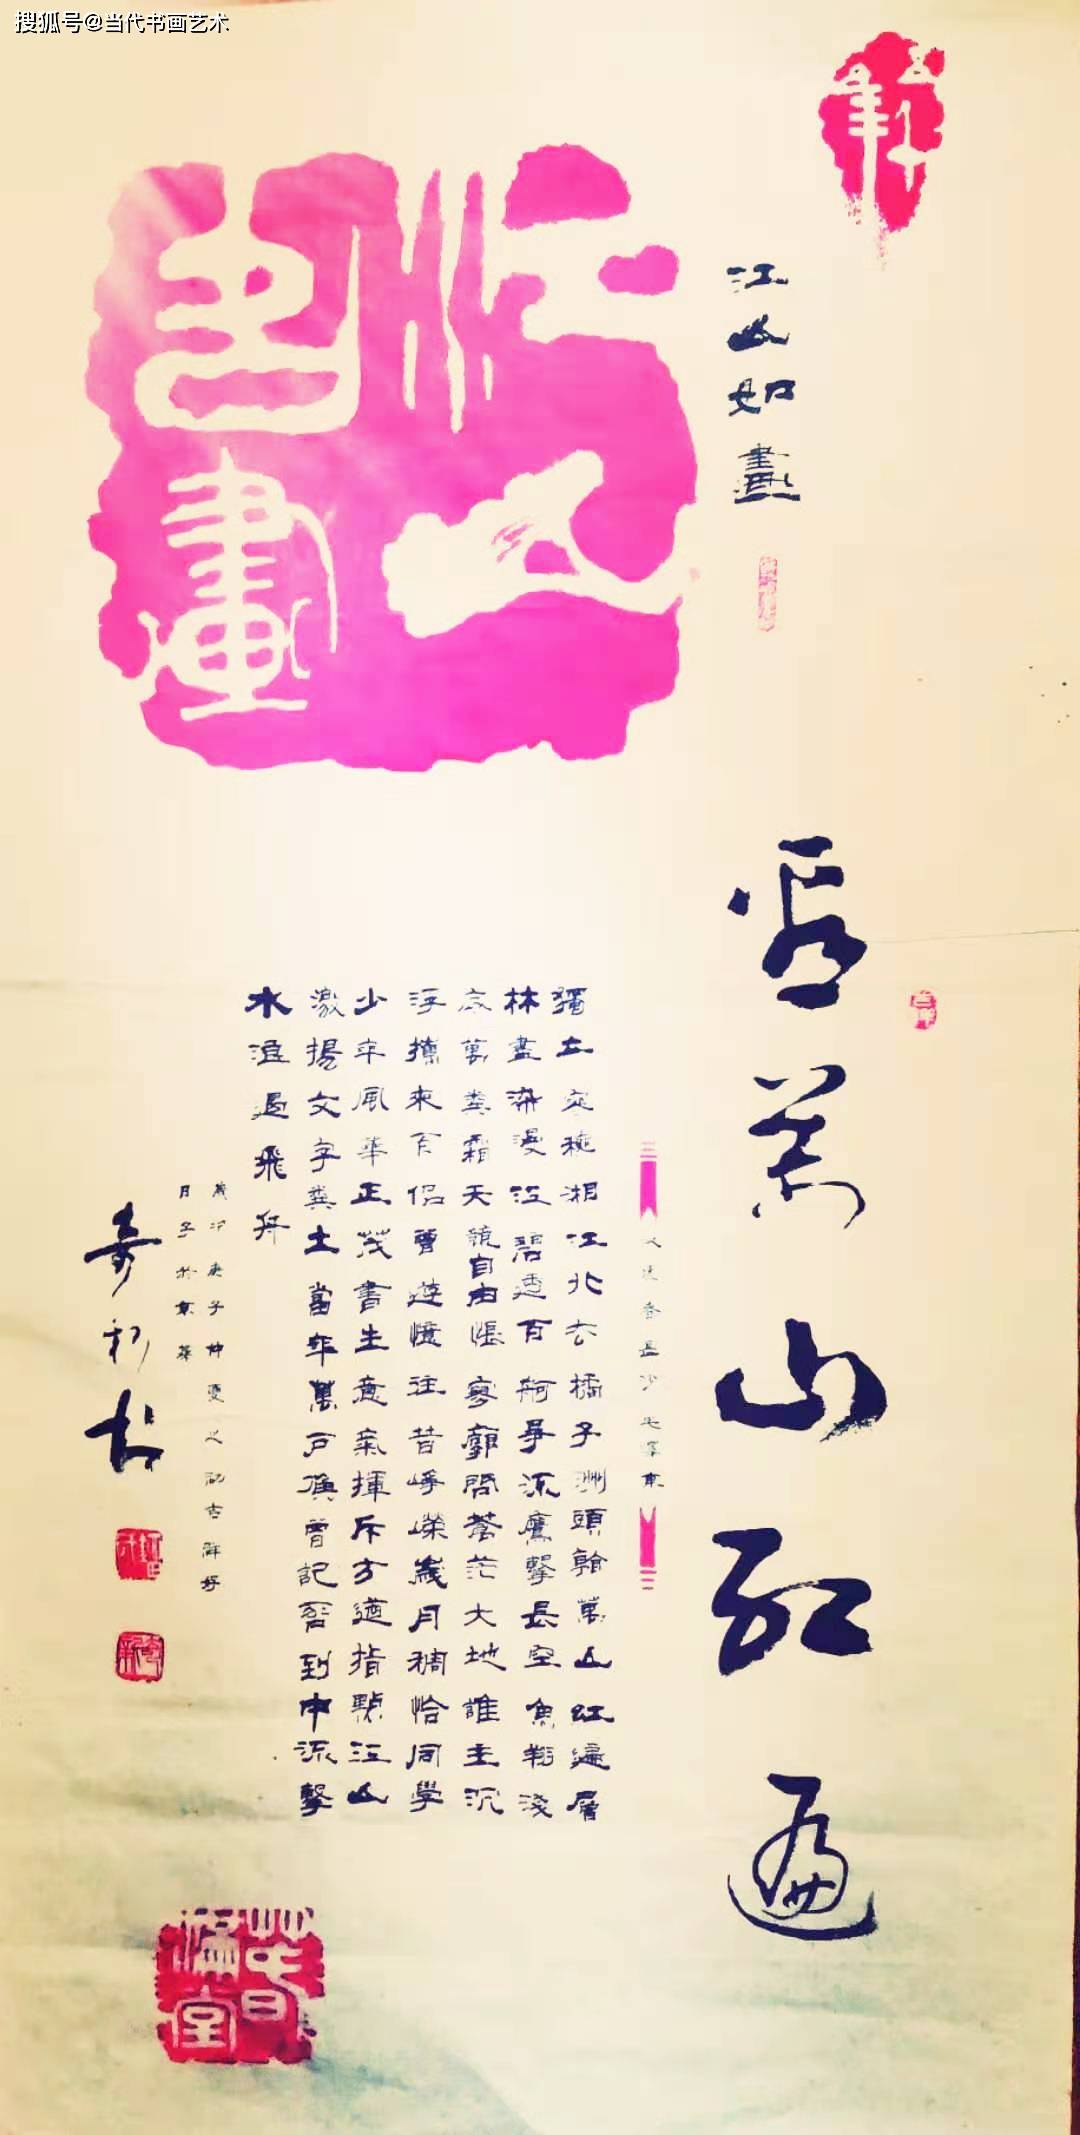 搜狐号@当代书画艺术
江山如畫
江山如畫
看萬山紅遍
沁園春長沙毛澤東
獨立寒穐湘江北去橘子洲頭看萬山紅遍層
林盡染漫江碧透百舸爭流鷹擊長空魚翔淺
底萬類霜天競自由悵寥廓問蒼茫大地誰主沉
浮攜來百侶曾遊憶往昔崢嶸歲月稠恰同學
少年風華正茂書生意氣揮斥方遒指點江山
激揚文字糞土當年萬戶侯曾記否到中流擊
水浪遏飛舟
歲次庚子仲夏之初吉祥好
月於京華
滿堂